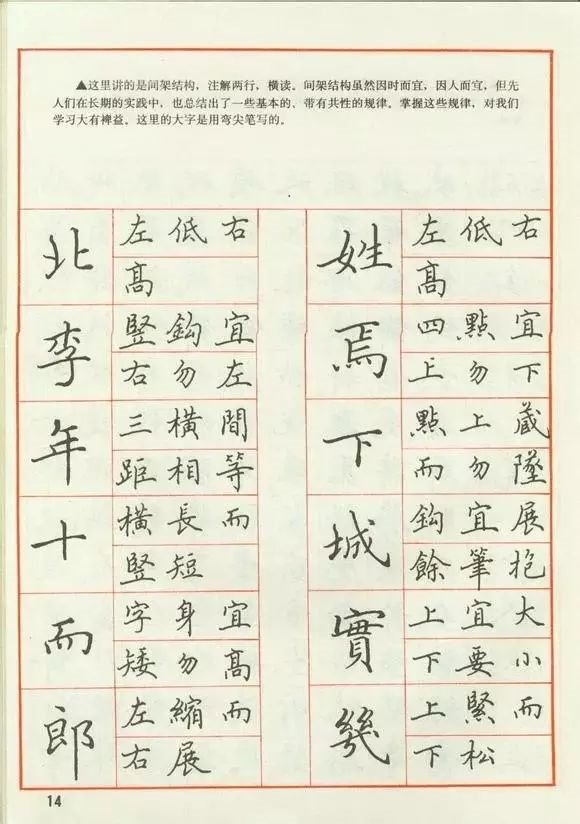 ▲这里讲的是间架结构，注解两行，横读。间架结构虽然因时而宜，因人而宜，但先
人们在长期的实践中，也总结出了一些基本的、带有共性的规律。掌握这些规律，对我们
学习大有裨益。这里的大字是用弯尖笔写的。
北
左低右
高
李
竖鈎宜
右勿左
年
三横間
距相等
十
横長而
竖短
而
字身宜
矮勿高
郎
左縮而
右展
姓
左低右
高
焉
四點宜
上勿下
下
點上藏
而勿墜
城
鈎宜展
餘筆抱
實
上宜大
下要小
幾
上緊而
下松
14